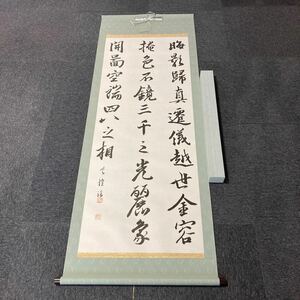 晦影歸真遷儀越世金容
掩色不鏡三千之光麗象
開圖空端四八之相